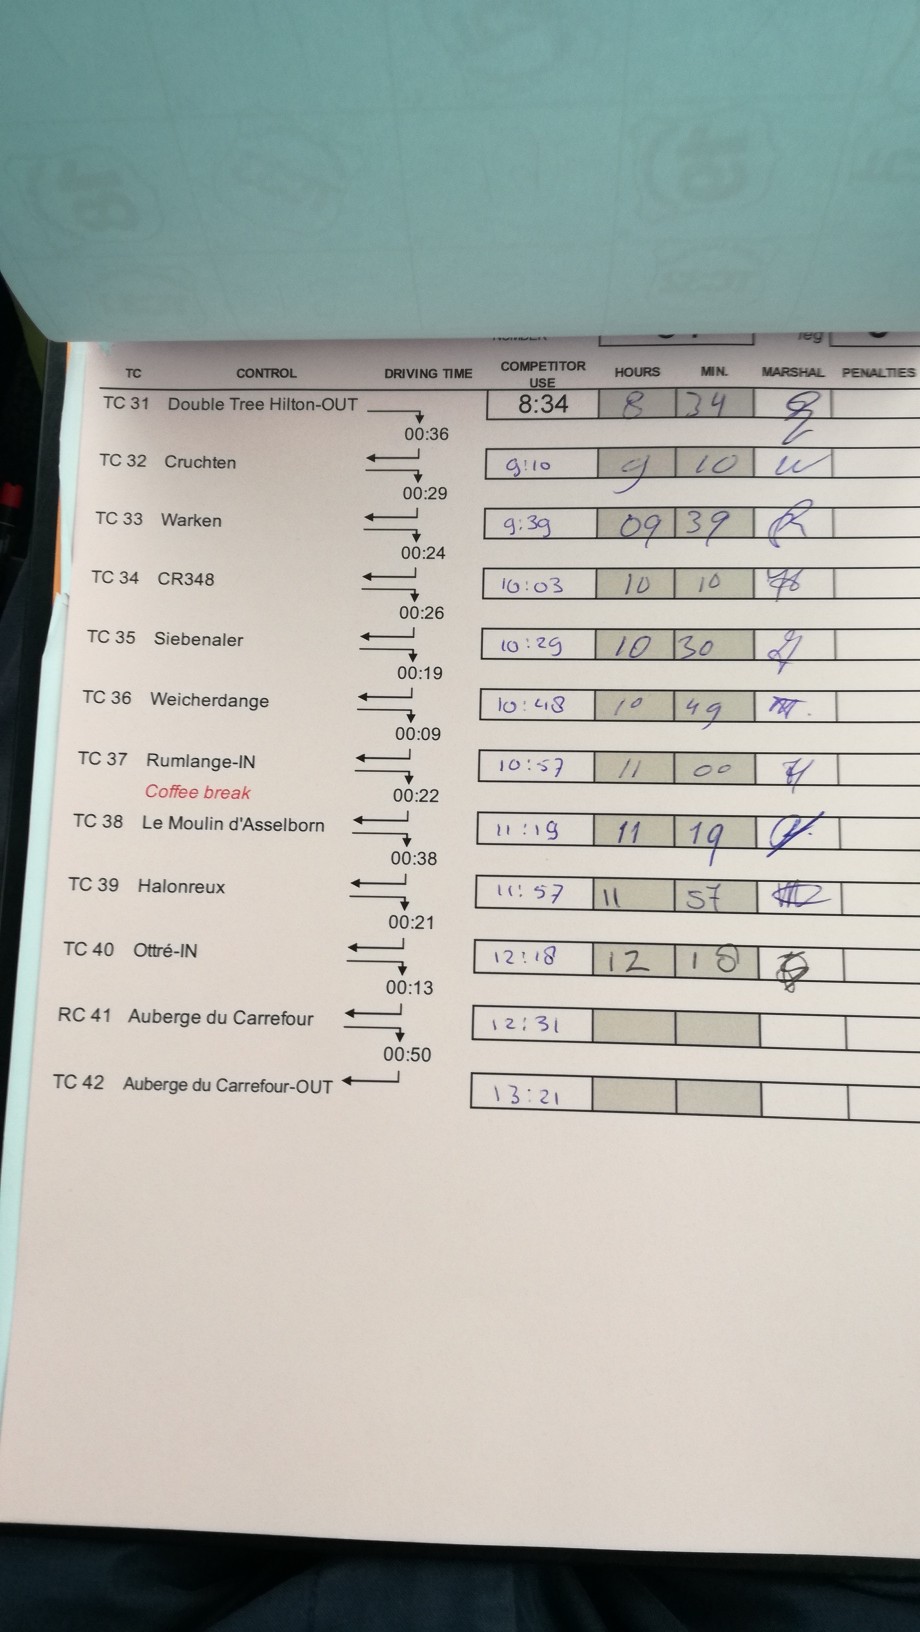 TC CONTROL DRIVING TIME COMPETITOR USE HOURS MIN. MARSHAL PENALTIES
TC 31 Double Tree Hilton-OUT 8:34 8 34
00:36
TC 32 Cruchten 9:10 9 10
00:29
TC 33 Warken 9:39 09 39
00:24
TC 34 CR348 10:03 10 10
00:26
TC 35 Siebenaler 10:29 10 30
00:19
TC 36 Weicherdange 10:48 10 49
00:09
TC 37 Rumlange-IN 10:57 11 00
Coffee break 00:22
TC 38 Le Moulin d'Asselborn 11:19 11 19
00:38
TC 39 Halonreux 11:57 11 57
00:21
TC 40 Ottré-IN 12:18 12 18
00:13
RC 41 Auberge du Carrefour 12:31
00:50
TC 42 Auberge du Carrefour-OUT 13:21